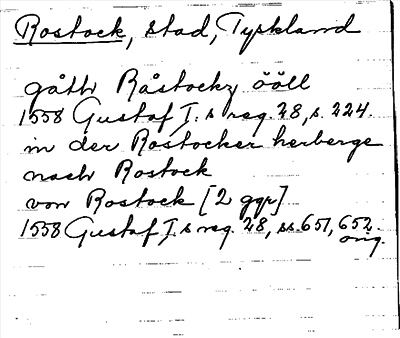 Rostock, stad, Tyskland
gåtth Råstockz ööll
1558 Gustaf I:s reg. 28, s. 224.
in der Rostocker herberge
nach Rostock
von Rostock [2 ggr]
1558 Gustaf I.s reg. 28, ss. 651, 652.
orig.